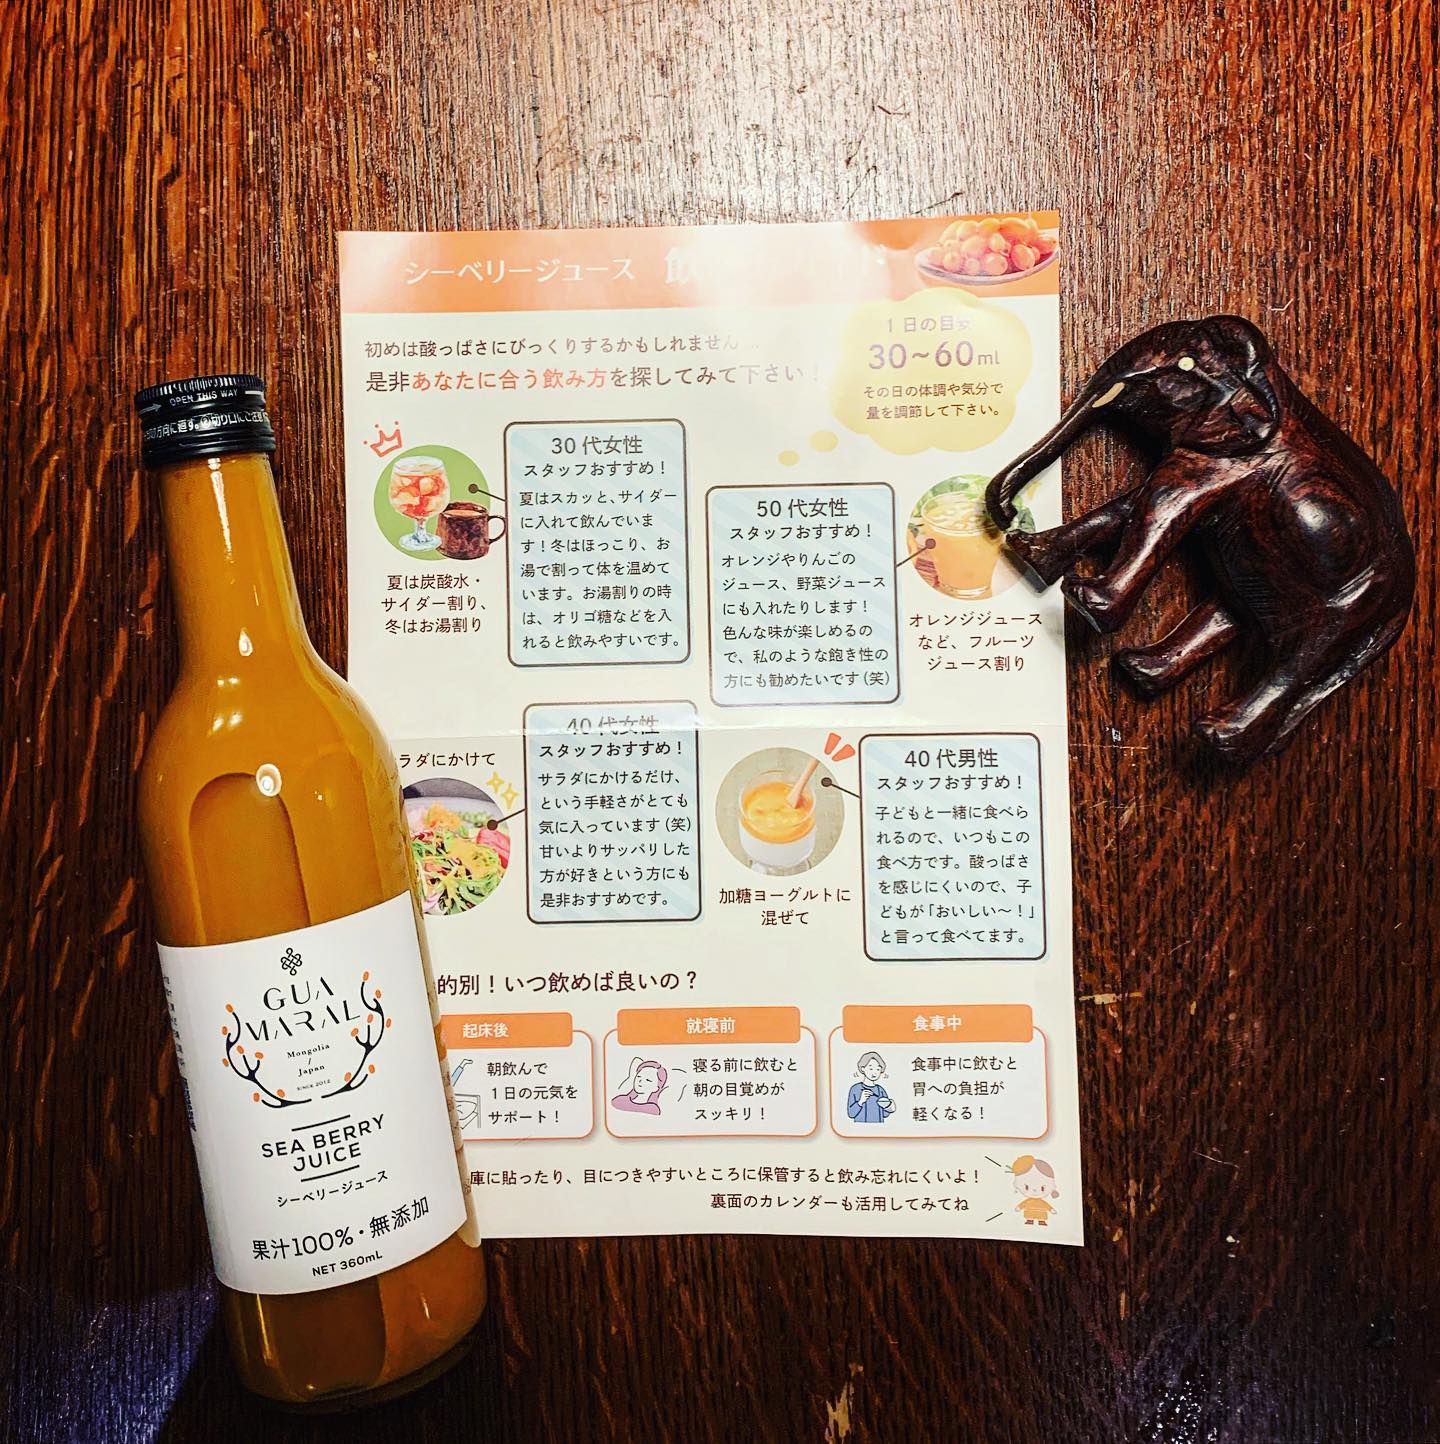 シーベリージュース 飲
初めは酸っぱさにびっくりするかもしれません…
是非あなたに合う飲み方を探してみて下さい！
1日の目安
30~60ml
その日の体調や気分で
量を調節して下さい。
30代女性
スタッフおすすめ！
夏はスカッと、サイダー
に入れて飲んでいま
す！冬はほっこり、お
湯で割って体を温めて
います。お湯割りの時
は、オリゴ糖などを入
れると飲みやすいです。
夏は炭酸水・
サイダー割り、
冬はお湯割り
50代女性
スタッフおすすめ！
オレンジやりんごの
ジュース、野菜ジュース
にも入れたりします！
色んな味が楽しめるの
で、私のような飽き性の
方にも勧めたいです(笑)
オレンジジュース
など、フルーツ
ジュース割り
ラダにかけて
40代女性
スタッフおすすめ！
サラダにかけるだけ、
という手軽さがとても
気に入っています(笑)
甘いよりサッパリした
方が好きという方にも
是非おすすめです。
加糖ヨーグルトに
混ぜて
40代男性
スタッフおすすめ！
子どもと一緒に食べら
れるので、いつもこの
食べ方です。酸っぱさ
を感じにくいので、子
どもが「おいしい～！」
と言って食べてます。
的別！いつ飲めば良いの？
起床後
朝飲んで
1日の元気を
サポート！
就寝前
寝る前に飲むと
朝の目覚めが
スッキリ！
食事中
食事中に飲むと
胃への負担が
軽くなる！
庫に貼ったり、目につきやすいところに保管すると飲み忘れにくいよ！
裏面のカレンダーも活用してみてね
OPEN THIS WAY
の方向に廻す。②切り口にご注意
GUA
MARAL
Mongolia
/
Japan
SINCE 2012
SEA BERRY
JUICE
シーベリージュース
果汁100%・無添加
NET 360mL